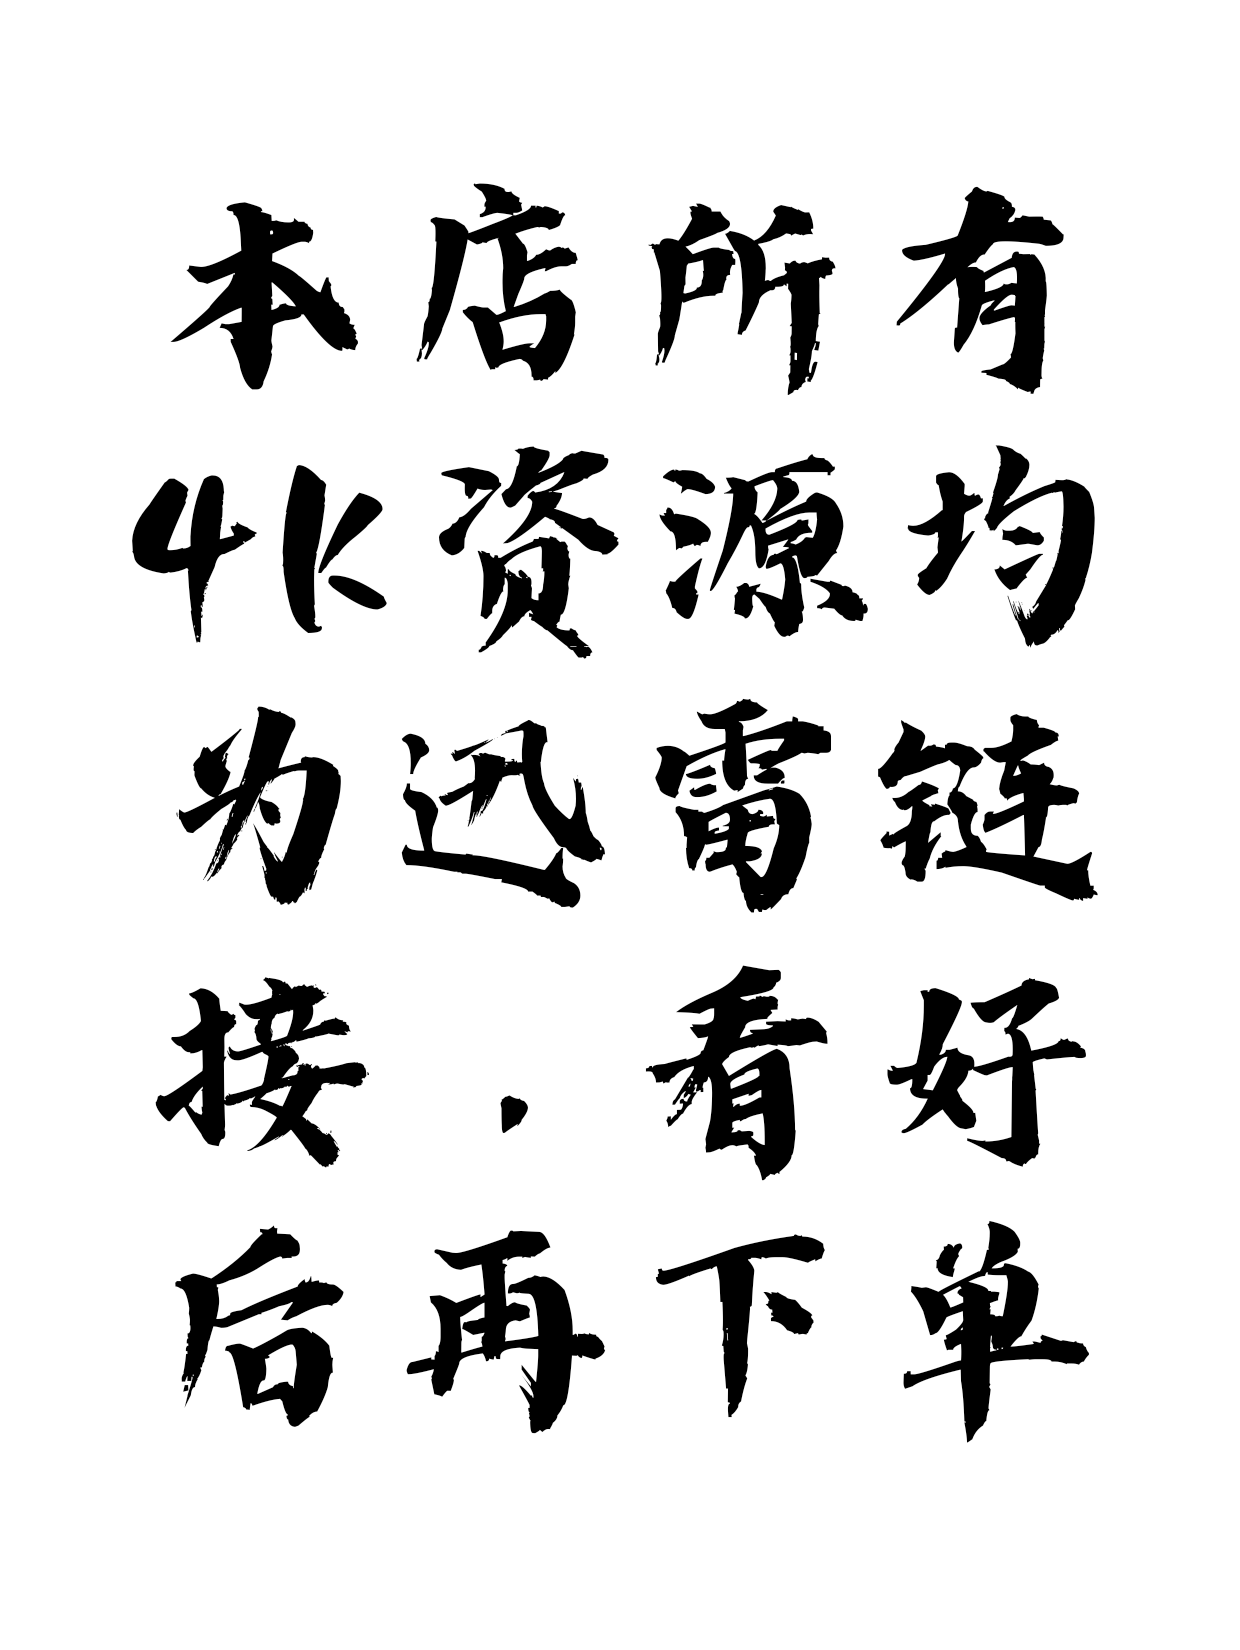 本店所有
4K资源均
为迅雷链
接.看好
后再下单